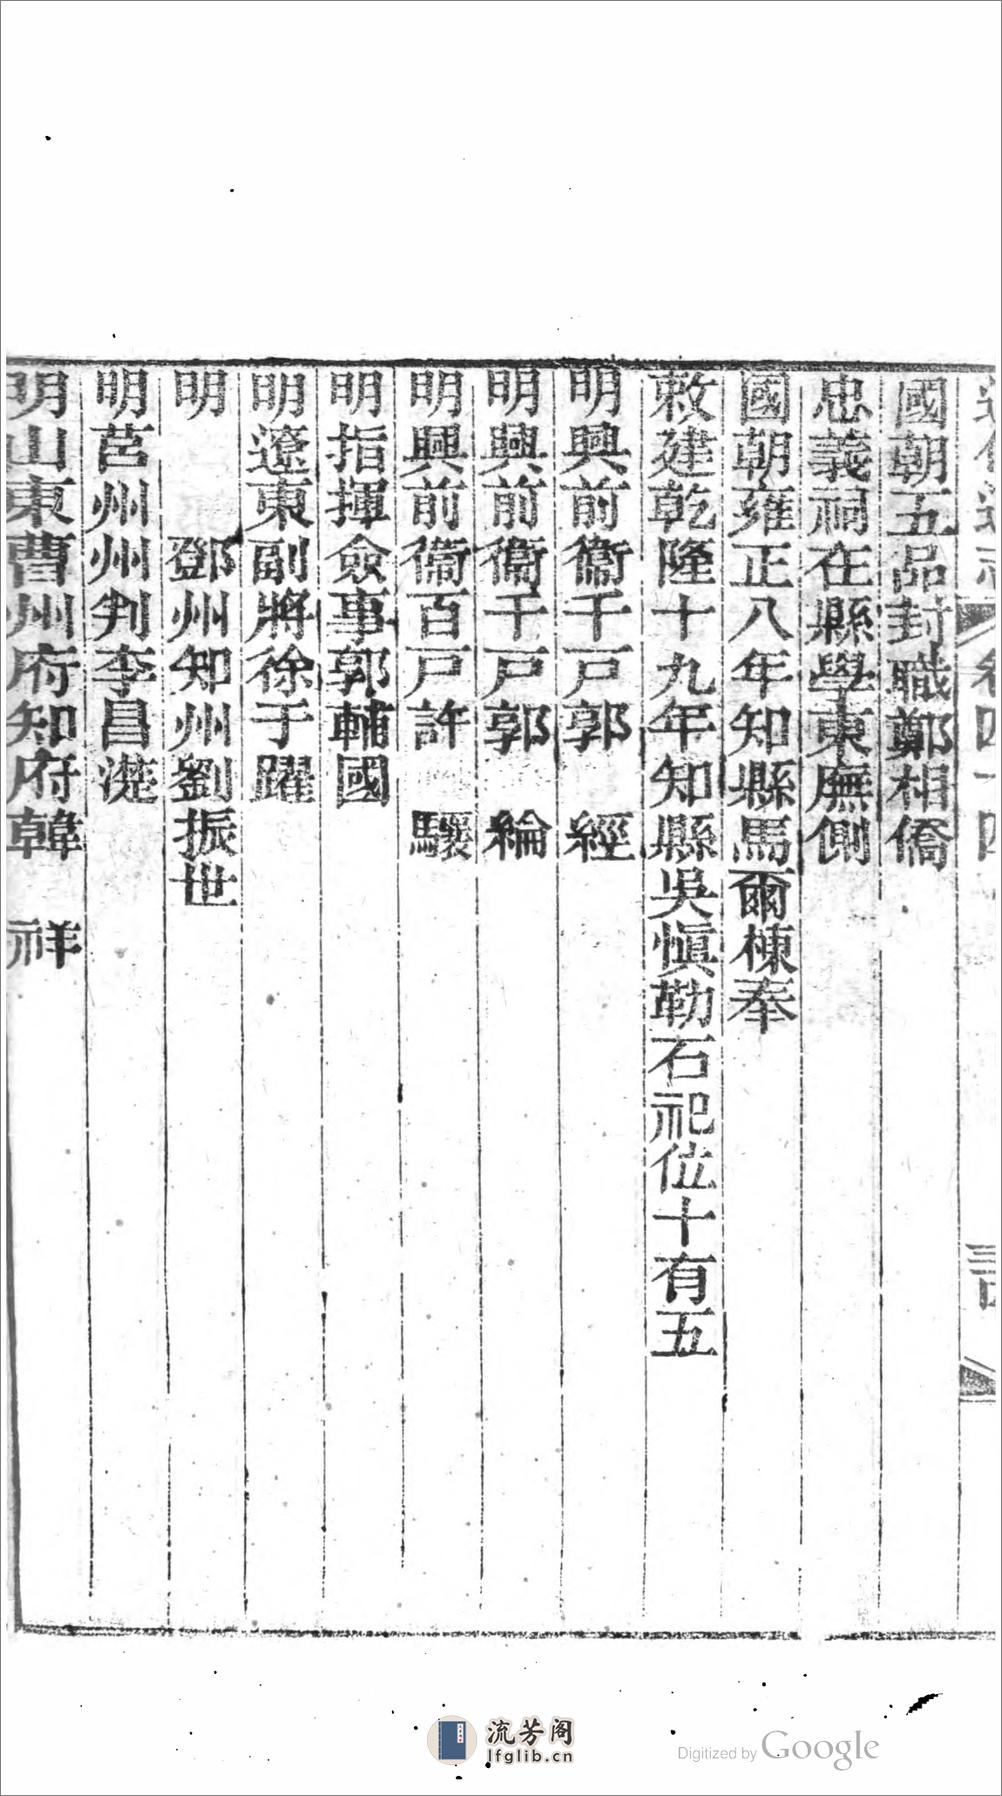 卷四十四
國朝五品封職鄭相僑
忠義祠在縣學東廡側
國朝雍正八年知縣馬爾棟奉
敕建乾隆十九年知縣吳慎勒石祀位十有五
明興前衞千戸郭　經
明興前衞千戸郭　綸
明興前衞百戸許　驤
明指揮僉事郭輔國
明遼東副將徐于躍
明　　鄧州知州劉振世
明莒州州判李昌漋
明山東曹州府知府韓　祥
流芳阁
lfglib.cn
Digitized by Google